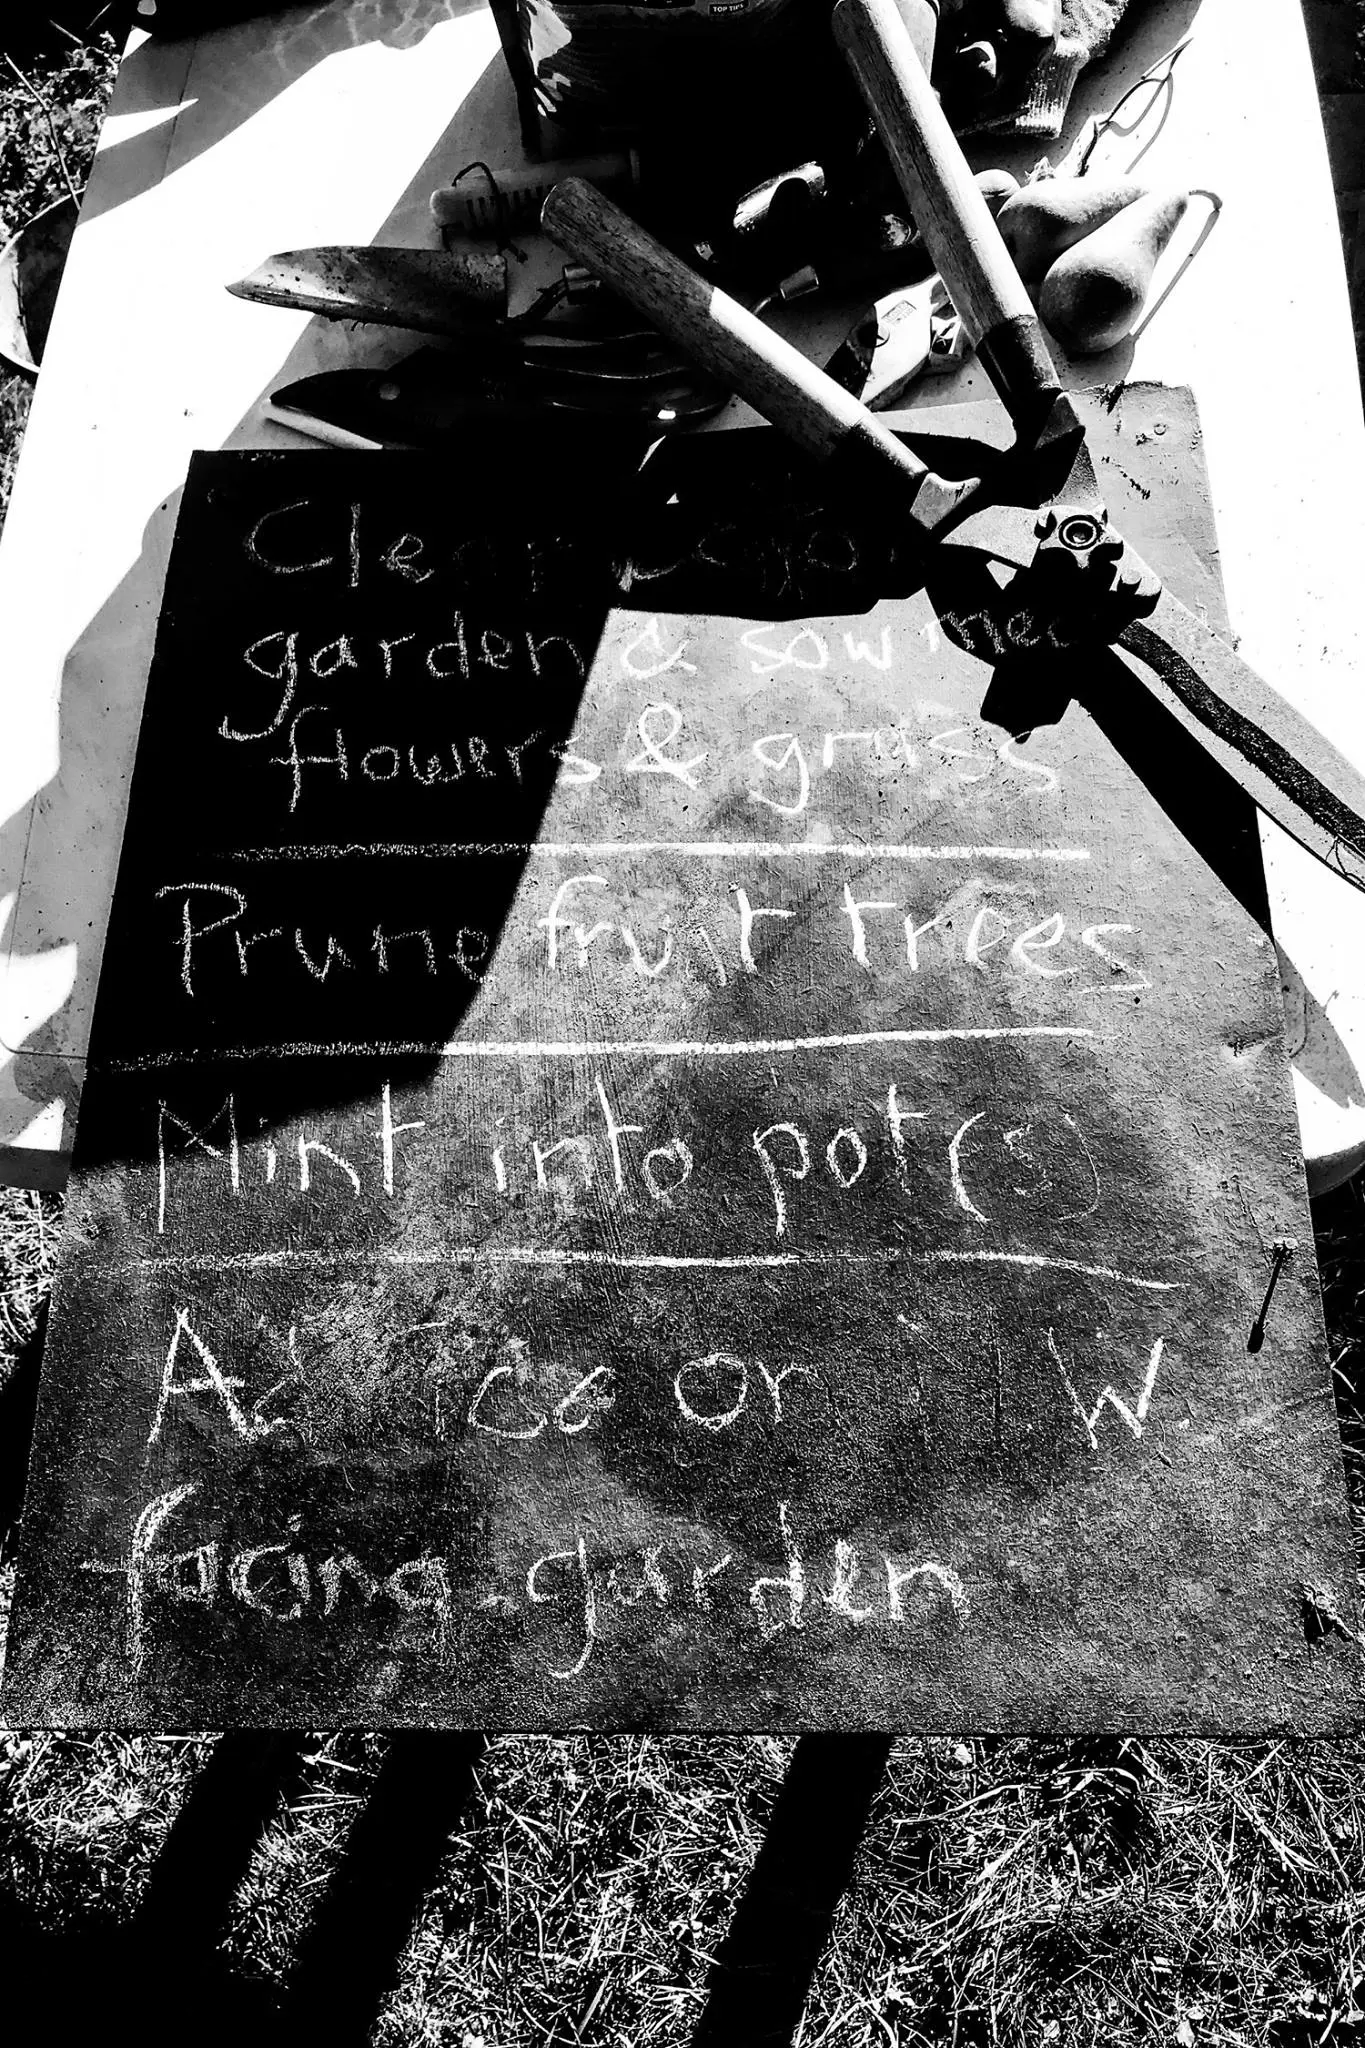 TOP TIPS
Clear
garden & sow
flowers & grass
Prune fruit trees
Mint into pot(s)
Advice on W.
facing garden